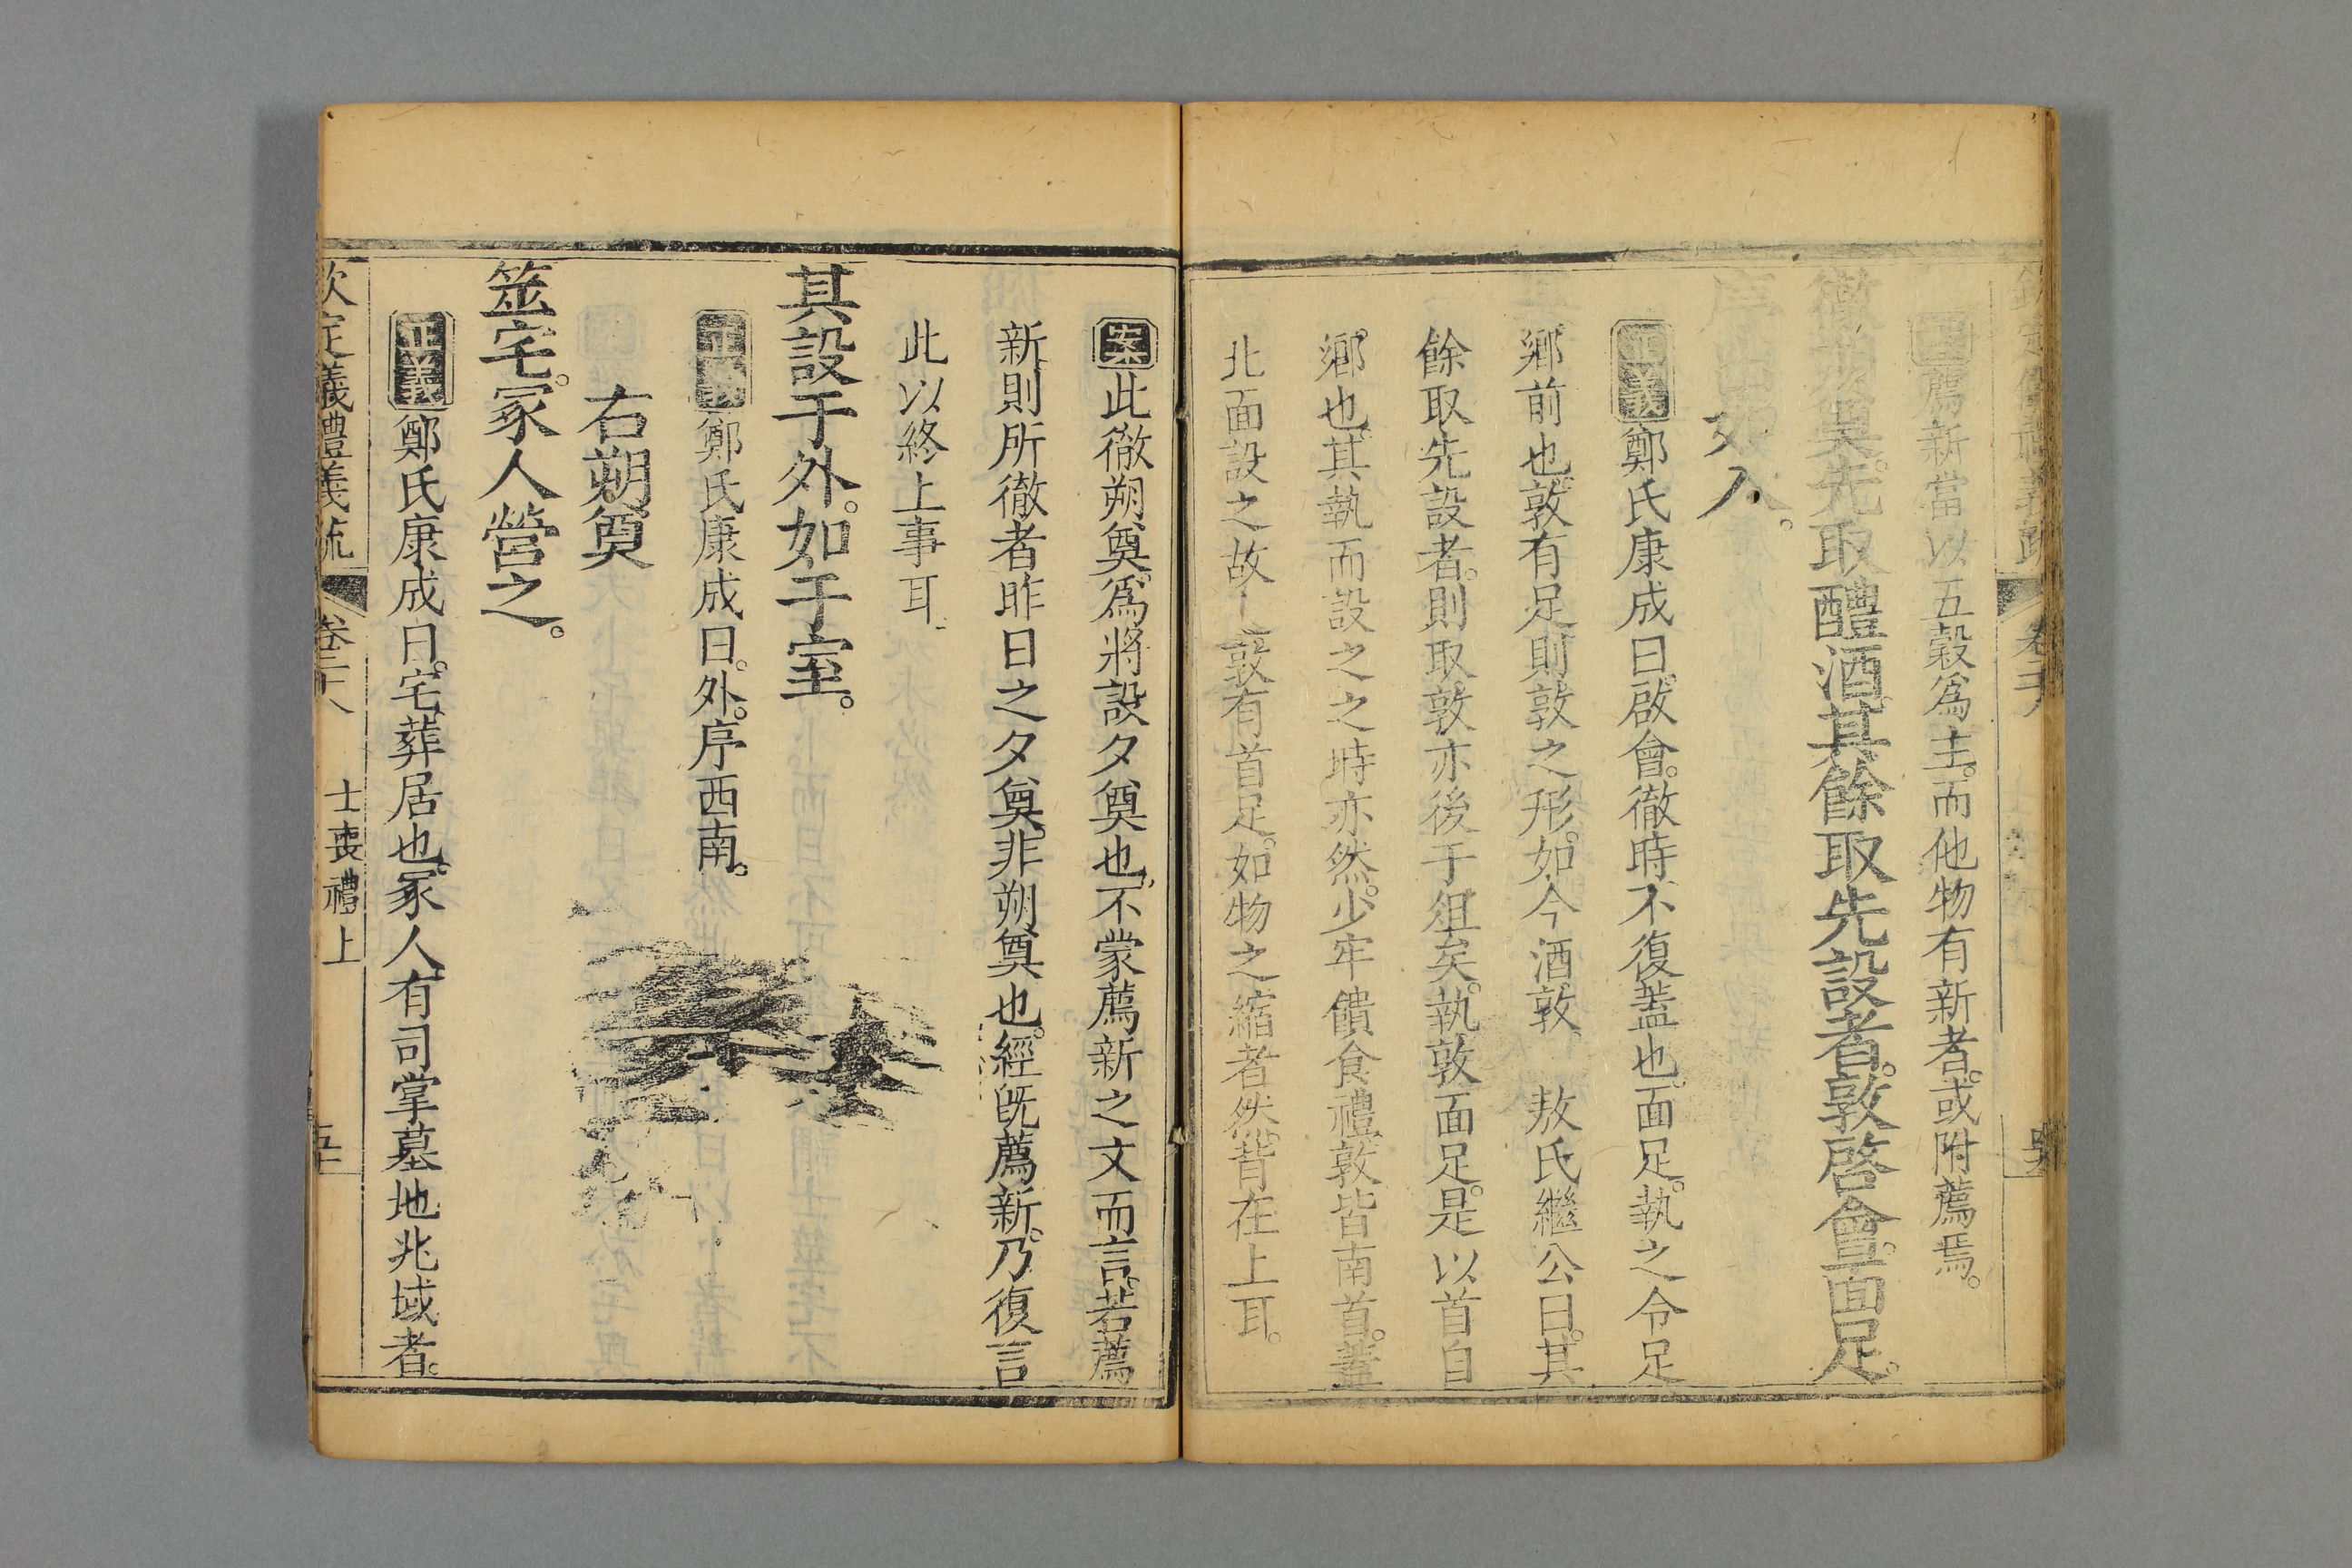 薦新當以五穀爲主而他物有新者或附薦焉
徹朔奠先取醴酒其餘取先設者敦啓會面足
序出如入
正義鄭氏康成曰啟會徹時不復蓋也面足執之令足
鄉前也敦有足則敦之形如今酒敦 敖氏繼公曰其
餘取先設者則取敦亦後于俎矣執敦面足是以首自
鄉也其執而設之之時亦然少牢饋食禮敦皆南首蓋
北面設之故 敦有首足如物之縮者然背在上耳
案此徹朔奠爲將設夕奠也不蒙薦新之文而言若薦
新則所徹者昨日之夕奠非朔奠也經旣薦新乃復言
此以終上事耳
其設于外如于室
正義鄭氏康成曰外序西南
右朔奠
筮宅冢人營之
正義鄭氏康成曰宅葬居也冢人有司掌墓地兆域者
欽定儀禮義疏 卷二十八 士喪禮上 五十